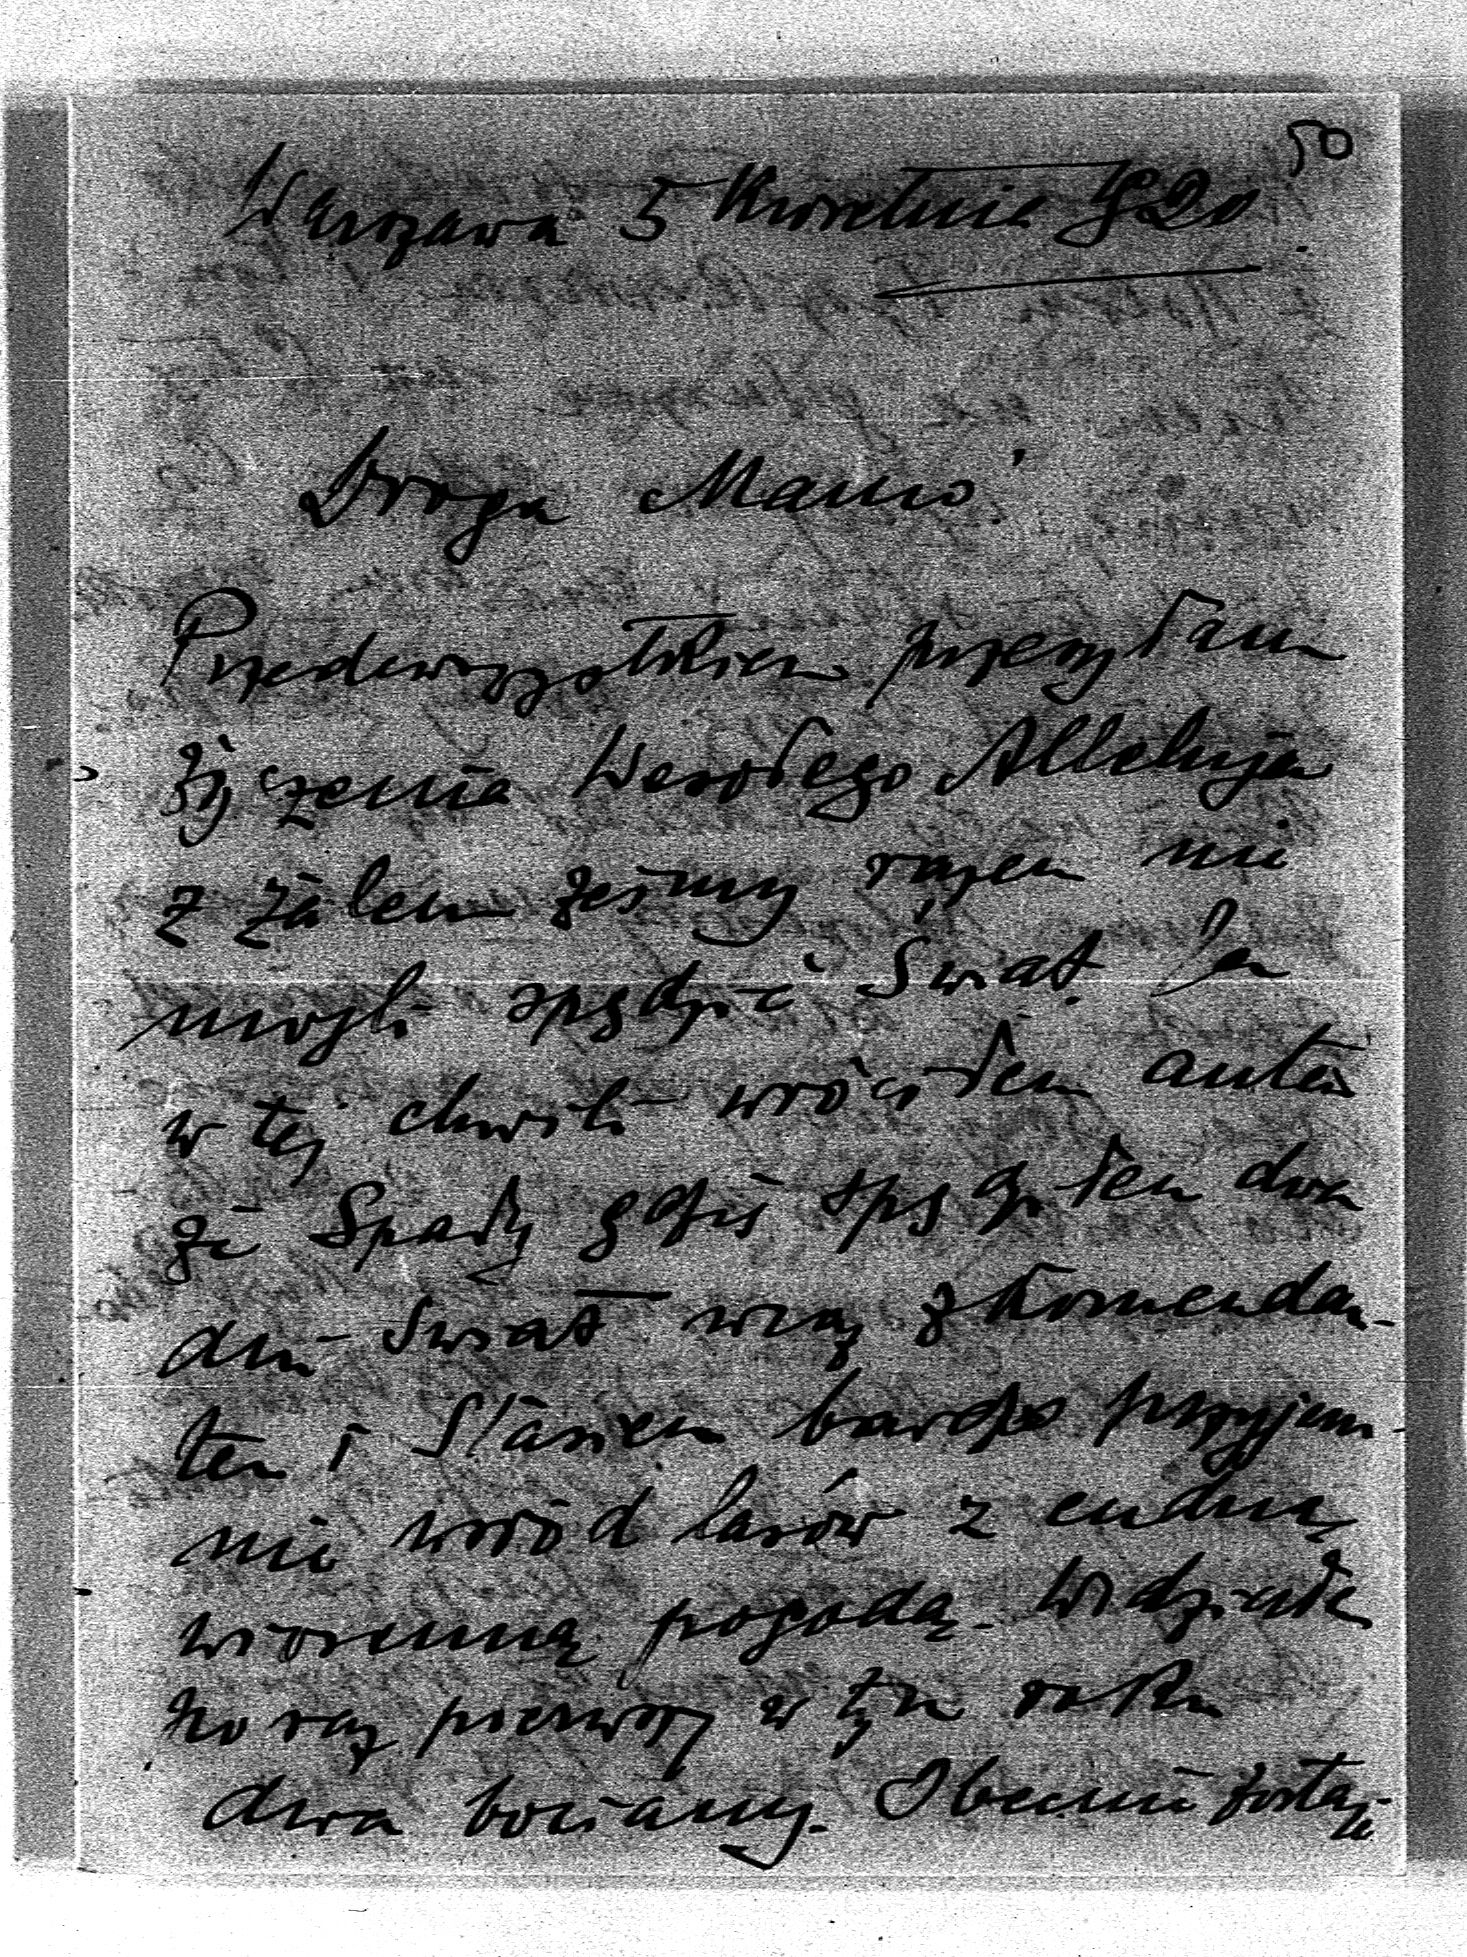 50
Warszawa 5 Kwietnia 920
Droga Mamo!
Przedewszystkiem przesyłam
życzenia Wesołego Alleluja
z żalem żeśmy razem nie
mogli spędzić Świąt. Ja
w tej chwili wróciłem autem
ze Spały gdzie spędziłem dwa
dni Świąt wraz z Komendan-
tem i Stasiem bardzo przyjem
nie wśród lasów z cudną
wiosenną pogodą. Widziałem
po raz pierwszy w tym roku
dwa bociany. Obecnie zostaję